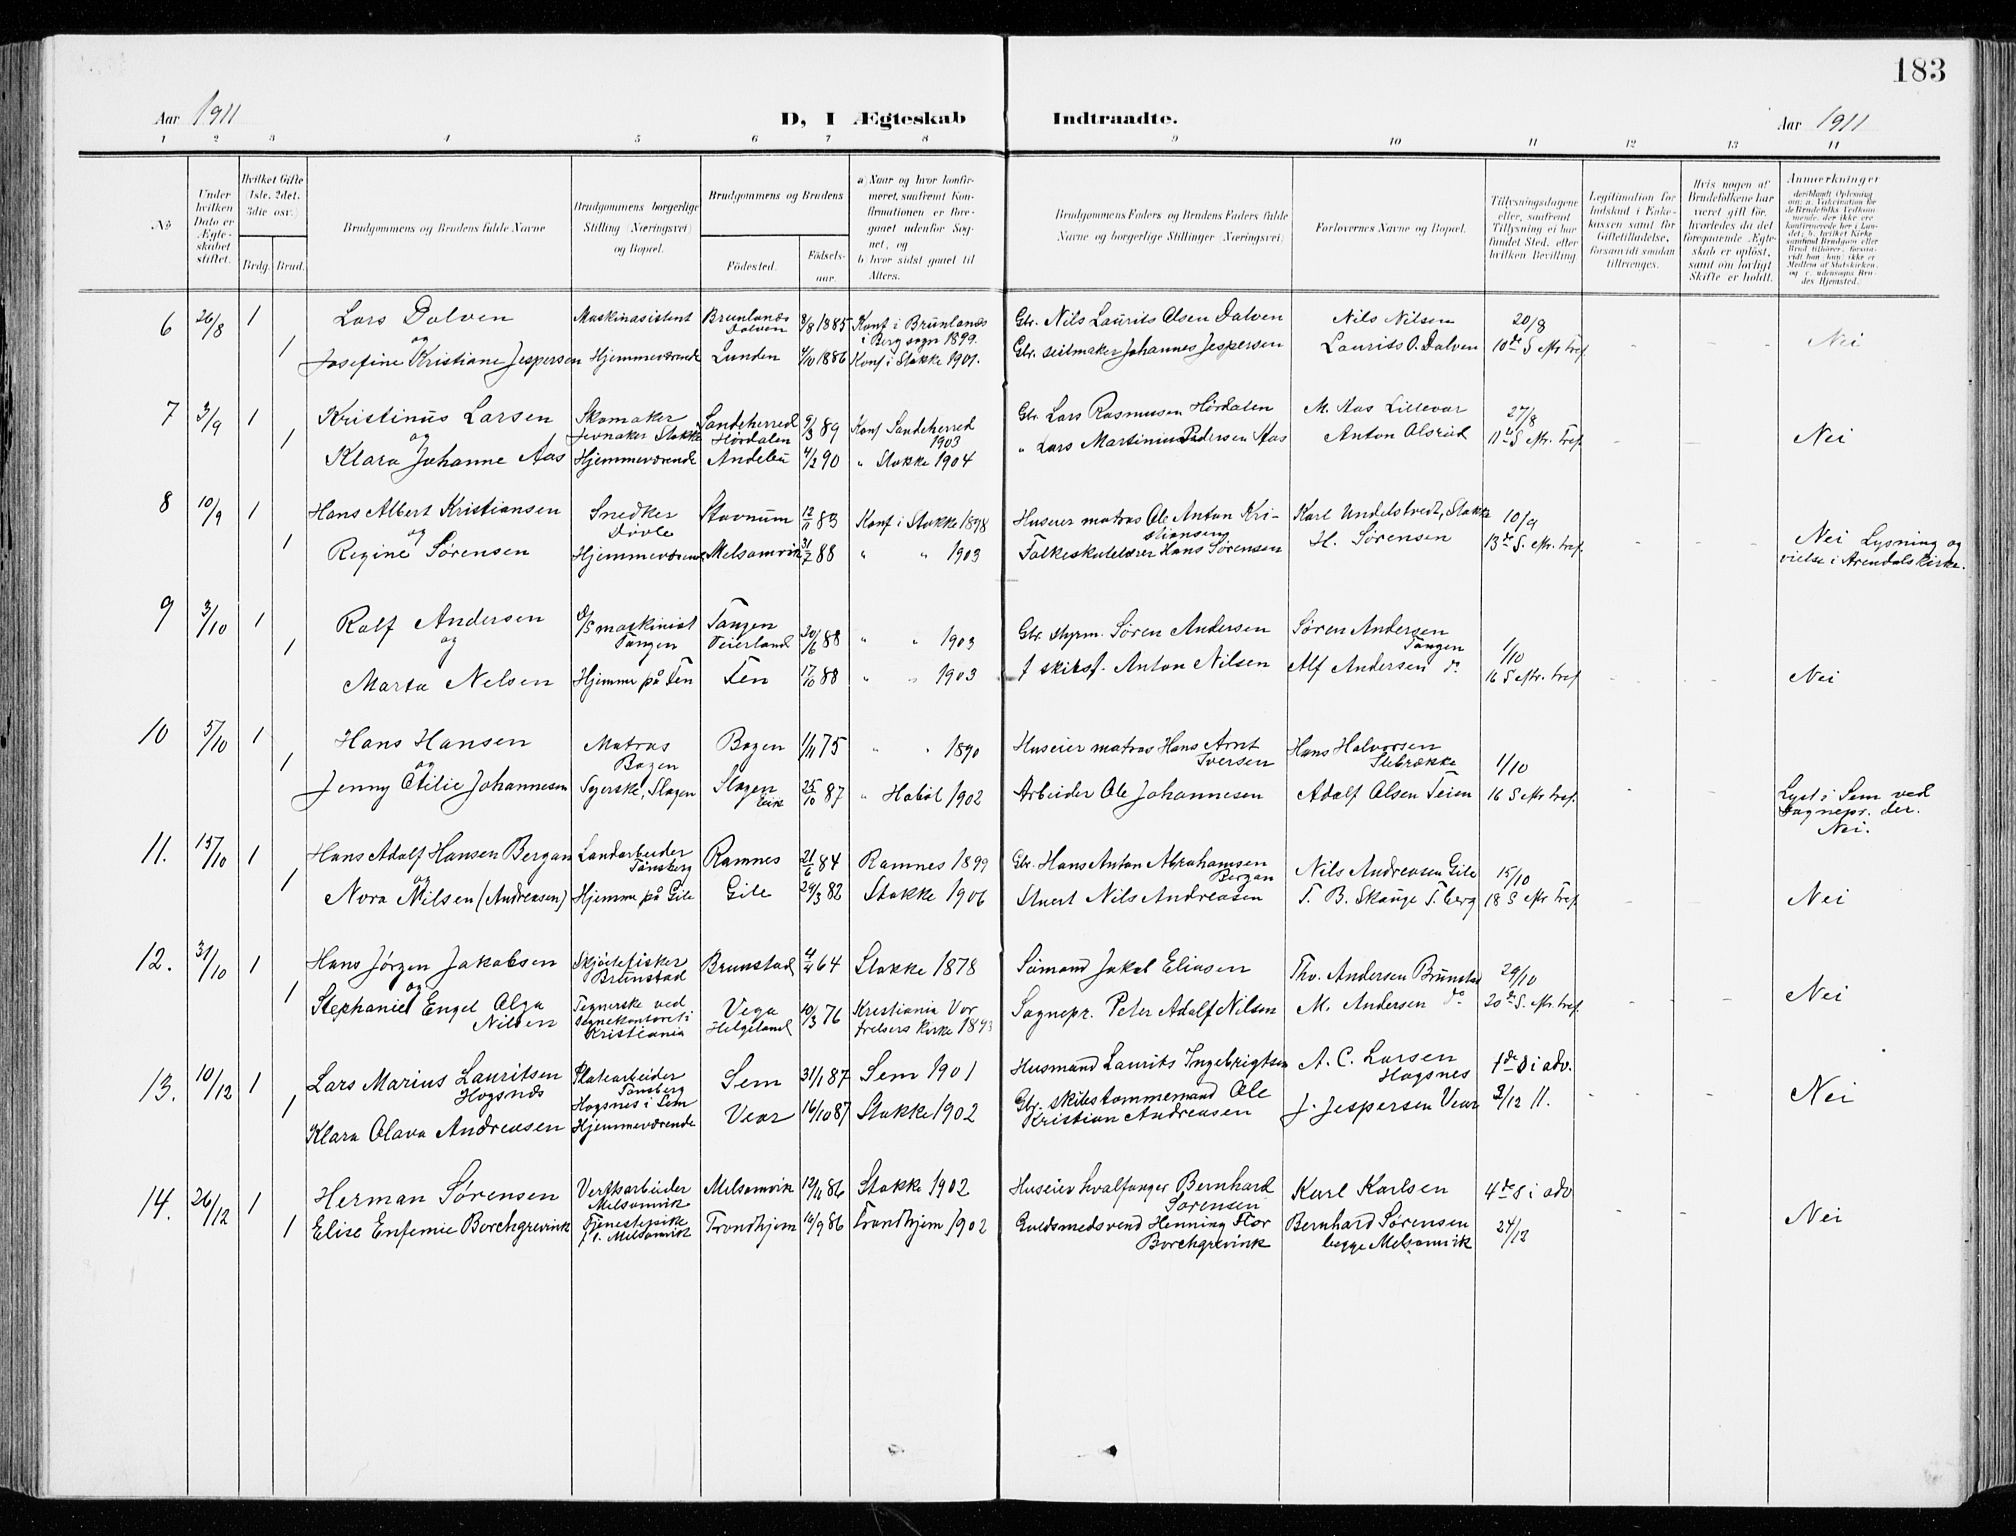 183
Aar 1911 D, I Ægteskab Indtraadte. Aar 1911
1 2 3 4 5 6 7 8 9 10 11 12 13 14
No
Under hvilken Dato er Ægteskabet stiftet.
Hvilket Gifte 1ste, 2det, 3die osv.)
Brdg. Brud.
Brudgommens og Brudens fulde Navne
Brudgommens borgerlige Stilling (Næringsvei) og Bopæl.
Brudgommens og Brudens
Fødested. Fødselsaar.
a) Naar og hvor konfirmeret, saafremt Konfirmationen er foregaaet udenfor Sognet, og
b) hvor sidst gaaet til Alters.
Brudgommens Faders og Brudens Faders fulde Navne og borgerlige Stillinger (Næringsvei)
Forlovernes Navne og Bopæl.
Tillysningsdagene eller, saafremt Tillysning ei har fundet Sted, efter hvilken Bevilling.
Legitimation for Indskud i Enkekassen samt for Giftetilladelse, forsaavidt saadan tiltrænges.
Hvis nogen af Brudefolkene har været gift før, hvorledes da det foregaaende Ægteskab er opløst, samt om lovligt Skifte er holdt.
Anmærkninger
6 26/8 1 Lars Dalven Maskinasistent Brunlanes Dalven 8/8 1885 Konf i Brunlanes i Berg sogn 1899. Gbr. Nils Laurits Olsen Dalven Nils Nilsen 20/8
og
1 Josefine Kristiane Jespersen Hjemmeværende Lunden 4/10 1886 Konf i Stokke 1901. Gbr. seilmaker Johannes Jespersen Laurits O. Dalven 10de S eftr tref. Nei
7 3/9 1 Kristinus Larsen Skomaker Jernaker Stokke Sandeherred Hørdalen 9/3 89 Konf Sandeherred 1903 Gbr. Lars Rasmusen Hørdalen M. Aas Lillevar 27/8
og
1 Klara Johanne Aas Hjemmeværende Andebu 4/2 90 " Stokke 1904 " Lars Martinius Pedersen Aas Anton Olsrød 11te S eftr. Tref. Nei
8 10/9 1 Hans Albert Kristiansen Snedker Dövle Stavnum 12/11 83 Konf i Stokke 1898 Huseier matros Ole Anton Kristiansen Karl Undelstvedt, Stokke 10/9
og
1 Regine Sørensen Hjemmeværende Melsomvik 31/7 88 " " 1903 Folkeskolelærer Hans Sørensen H. Sørensen 13de S. eftr. tref. Nei Lysning og vielse i Arendals kirke.
9 3/10 1 Ralf Andersen D/S maskinist Tangen Tangen Veierland 30/6 88 " " 1903 Gbr. styrm. Søren Andersen Søren Andersen Tangen 1/10
og
1 Marta Nelsen Hjemme på Fen Fen 17/10 88 " " 1903 f skibsf. Anton Nilsen Alf Andersen do 16 S eftr. tref. Nei
10 5/10 1 Hans Hansen Matros Bogen Bogen 1/11 75 " " 1890 Huseier matros Hans Arnt Iversen Hans Halvorsen Slebrække 1/10
og
1 Jenny Otilie Johannesen Syerske, Slagen Slagen Eik 25/10 87 " Hobøl 1902 Arbeider Ole Johannesen Adolf Olsen Teien 16 S eftr tref. Lyst i Sem ved Sognepr. der. Nei.
11. 15/10 1 Hans Adolf Hansen Bergan Landarbeider Tønsberg Ramnes 21/6 84 Ramnes 1899 Gbr. Hans Anton Abrahamsen Bergan Nils Andreasen Gile 15/10
og
1 Nora Nilsen (Andreasen) Hjemme på Gile Gile 29/3 82 Stokke 1906 Stuert Nils Andreasen T. B. Skauge T.berg 18 S eftr tref. Nei
12. 31/10 1 Hans Jörgen Jakobsen Skjöitefisker Brunstad Brunstad 4/4 64 Stokke 1878 Sömand Jakob Eliasen Thv. Andersen Brunstad 29/10
og
1 Stephanie Engel Olga Nilsen Tegnerske ved tegnekontoret i Kristiania Vega Helgeland 10/3 76 Kristiania Vor frelsers kirke 1893 Sognepr. Peter Adolf Nilsen M. Andersen do 20de S. eftr. tref. Nei
13. 10/12 1 Lars Marius Lauritsen Hogsnæs Platearbeider Tønsberg Hogsnes i Sem Sem 31/1 87 Sem 1901 Husmand Laurits Ingebrigtsen A. C. Larsen Hogsnes 1de S i adv.
1 Klara Olava Andreasen Hjemmeværende Vear 16/10 87 Stokke 1902 Gbr. skibstømmermand Ole Kristian Andreasen J. Jespersen Vear 3/12 11. Nei
14. 26/12 1 Herman Sørensen Verftsarbeider Melsomvik Melsomvik 12/11 86 Stokke 1902 Huseier hvalfanger Bernhard Sørensen Karl Karlsen 4de S i adv
1 Elise Enfemie Borchgrevink Tjenestepike Melsomvik Trondhjem 16/9 86 Trondhjem 1902 Guldsmedsvend Henning Flor Borchgrevink Bernhard Sørensen begge Melsomvik 24/12 Nei